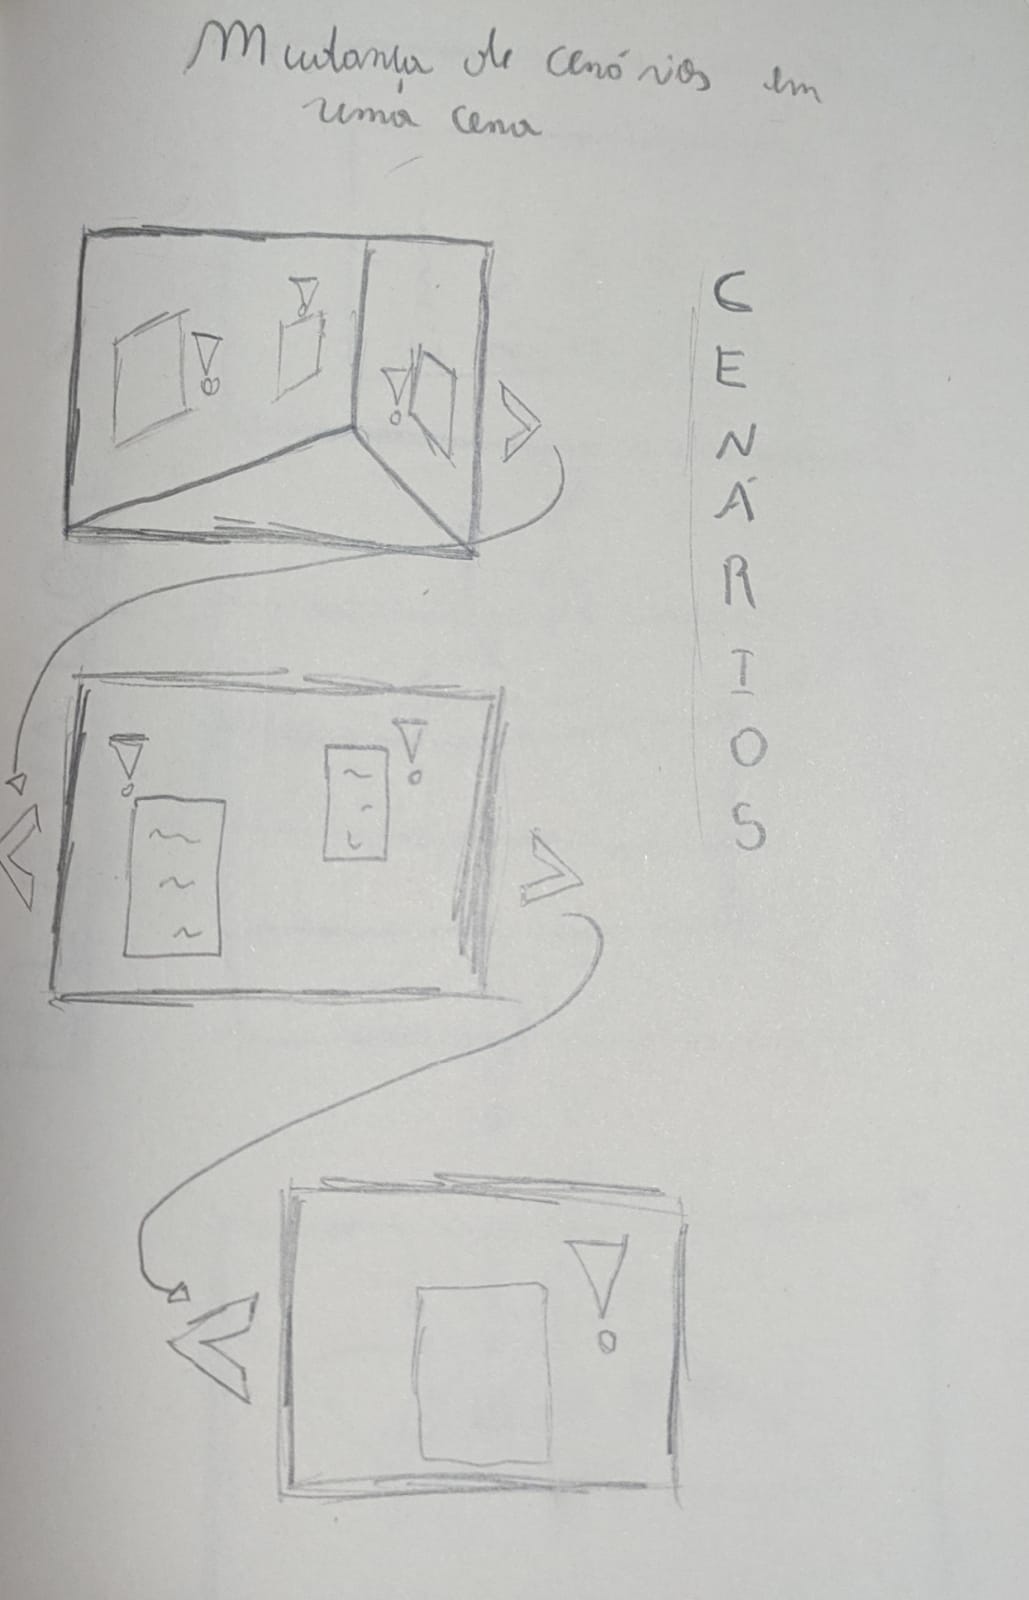 Mudança de cenários em
uma cena
CENÁRIOS